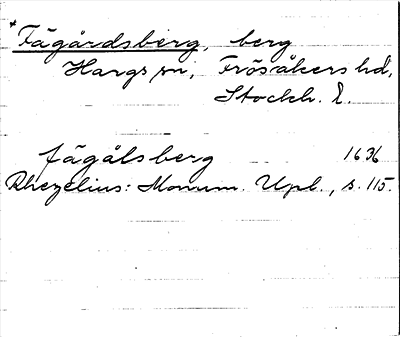 *Fågårdsberg, berg
Hargs sn, Frösåkers hd,
Stockh. L.
fågålsberg 1636
Rhezelius: Monum. Upl., s. 115.